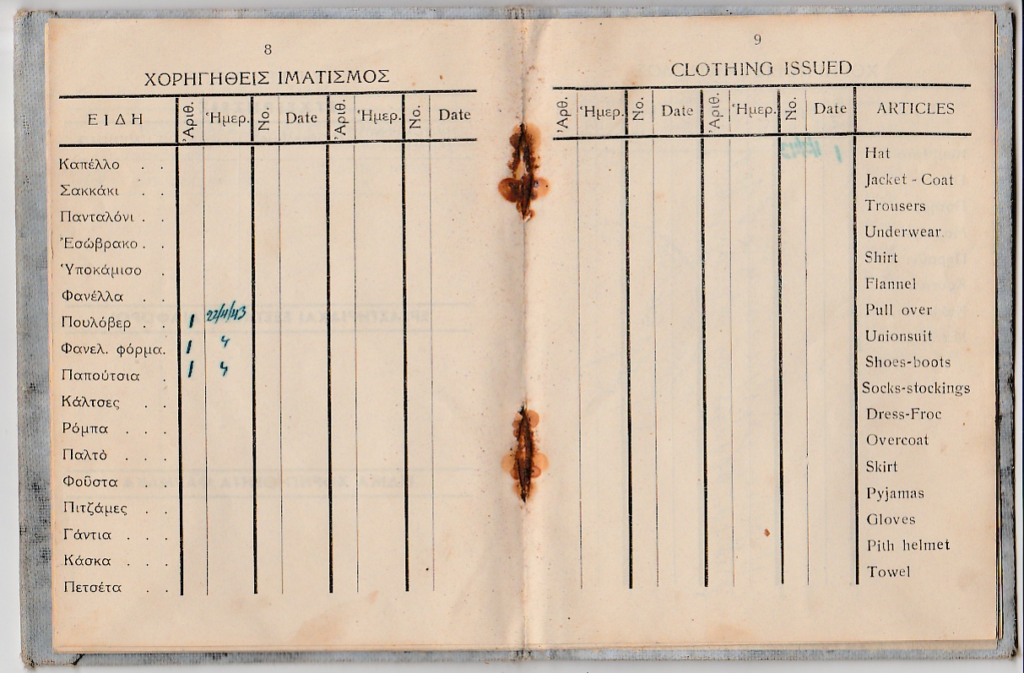 8
ΧΟΡΗΓΗΘΕΙΣ ΙΜΑΤΙΣΜΟΣ
ΕΙΔΗ Ἀριθ. Ἡμερ. No. Date Ἀριθ. Ἡμερ. No. Date
Καπέλλο . .
Σακκάκι . .
Πανταλόνι . .
Ἐσώβρακο . .
Ὑποκάμισο .
Φανέλλα . .
Πουλόβερ . . 1 22/11/43
Φανελ. φόρμα. 1 "
Παπούτσια . 1 "
Κάλτσες . .
Ρόμπα . . .
Παλτὸ . . .
Φοῦστα . .
Πιτζάμες . .
Γάντια . . .
Κάσκα . . .
Πετσέτα . .
9
CLOTHING ISSUED
Ἀριθ. Ἡμερ. No. Date Ἀριθ. Ἡμερ. No. Date ARTICLES
Hat
Jacket - Coat
Trousers
Underwear.
Shirt
Flannel
Pull over
Unionsuit
Shoes-boots
Socks-stockings
Dress-Froc
Overcoat
Skirt
Pyjamas
Gloves
Pith helmet
Towel